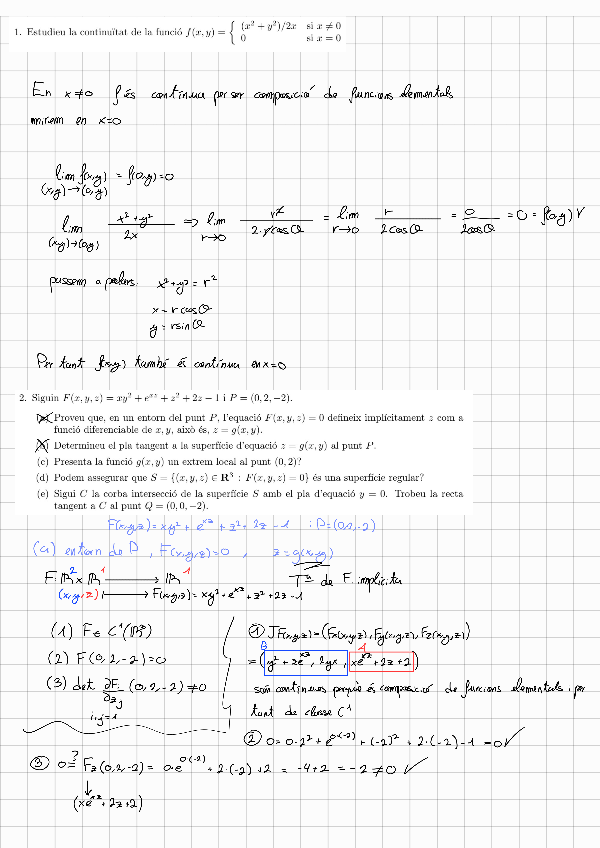 1. Estudieu la continuïtat de la funció f(x, y) = { (x² + y²)/2x si x ≠ 0
0 si x = 0
En x≠0 f és contínua per ser composició de funcions elementals
mirem en x=0
lim f(x,y) = f(0,y)=0
(x,y)→(0,y)
lim (x,y)→(0,y) x²+y² / 2x ⇒ lim r→0 r² / 2·r cosθ = lim r→0 r / 2cosθ = 0 / 2cosθ = 0 = f(0,y) √
passem a polars: x²+y² = r²
x = r cosθ
y = r sinθ
Per tant f(x,y) també és contínua en x=0
2. Siguin F(x, y, z) = xy² + e^{xz} + z² + 2z − 1 i P = (0, 2, −2).
(a) Proveu que, en un entorn del punt P, l'equació F(x, y, z) = 0 defineix implícitament z com a
funció diferenciable de x, y, això és, z = g(x, y).
(b) Determineu el pla tangent a la superfície d'equació z = g(x, y) al punt P.
(c) Presenta la funció g(x, y) un extrem local al punt (0, 2)?
(d) Podem assegurar que S = {(x, y, z) ∈ R³ : F(x, y, z) = 0} és una superfície regular?
(e) Sigui C la corba intersecció de la superfície S amb el pla d'equació y = 0. Trobeu la recta
tangent a C al punt Q = (0, 0, −2).
F(x,y,z) = xy² + e^{xz} + z² + 2z − 1 i P=(0,2,−2)
(a) entorn de P, F(x,y,z)=0, z=g(x,y)
F: ℝ² × ℝ¹ → ℝ¹ Tª de F. implícita
(x,y,z) ↦ F(x,y,z) = xy² + e^{xz} + z² + 2z − 1
(1) F ∈ C¹(ℝ³)
(2) F(0,2,−2) = 0
(3) det ∂F_i/∂z_j (0,2,−2) ≠ 0
i,j=1
① JF(x,y,z) = (Fx(x,y,z), Fy(x,y,z), Fz(x,y,z))
B A
= (y² + ze^{xz}, 2yx, xe^{xz} + 2z + 2)
són contínues perquè és composició de funcions elementals i per
tant de classe C¹
② 0 = 0·2² + e^{0·(−2)} + (−2)² + 2·(−2) − 1 = 0 ✓
③ 0 ≟ Fz(0,2,−2) = 0·e^{0·(−2)} + 2·(−2) + 2 = −4+2 = −2 ≠ 0 ✓
↓
(xe^{xz} + 2z + 2)